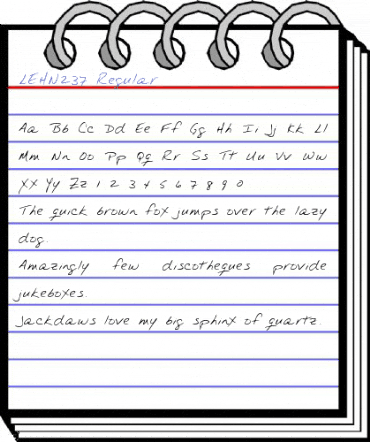 LEHN237 Regular
Aa Bb Cc Dd Ee Ff Gg Hh Ii Jj Kk Ll
Mm Nn Oo Pp Qq Rr Ss Tt Uu Vv Ww
Xx Yy Zz 1 2 3 4 5 6 7 8 9 0
The quick brown fox jumps over the lazy
dog.
Amazingly few discotheques provide
jukeboxes.
Jackdaws love my big sphinx of quartz.